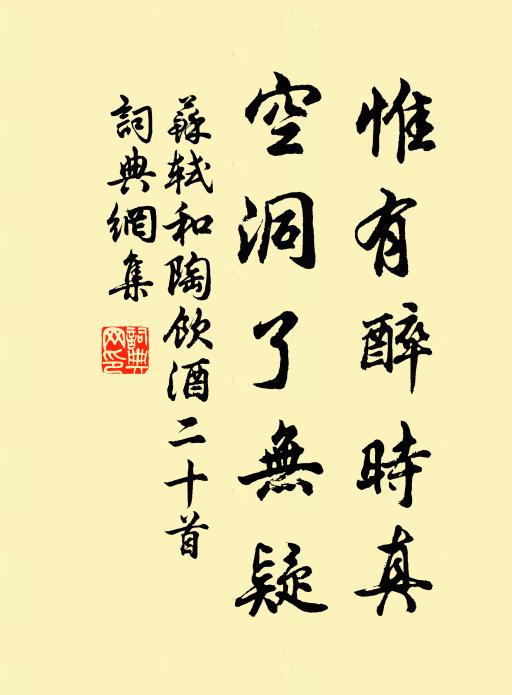 惟有醉時真
空洞了無疑
蘇軾和陶飲酒二十首
詞典網集
詞典网印